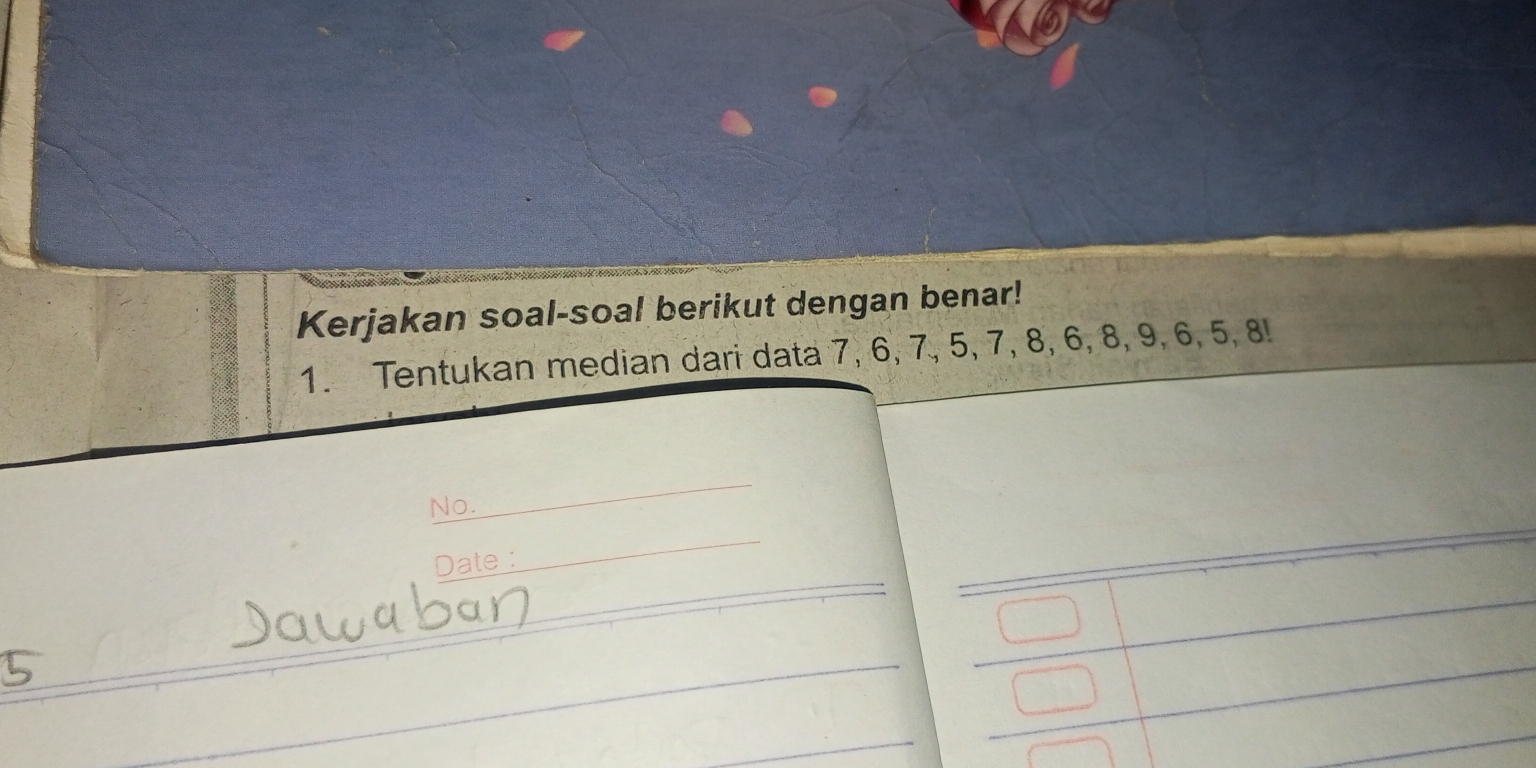 Kerjakan soal-soal berikut dengan benar!
1. Tentukan median dari data 7, 6, 7, 5, 7, 8, 6, 8, 9, 6, 5, 8!
No.
Date :
Jawaban
5